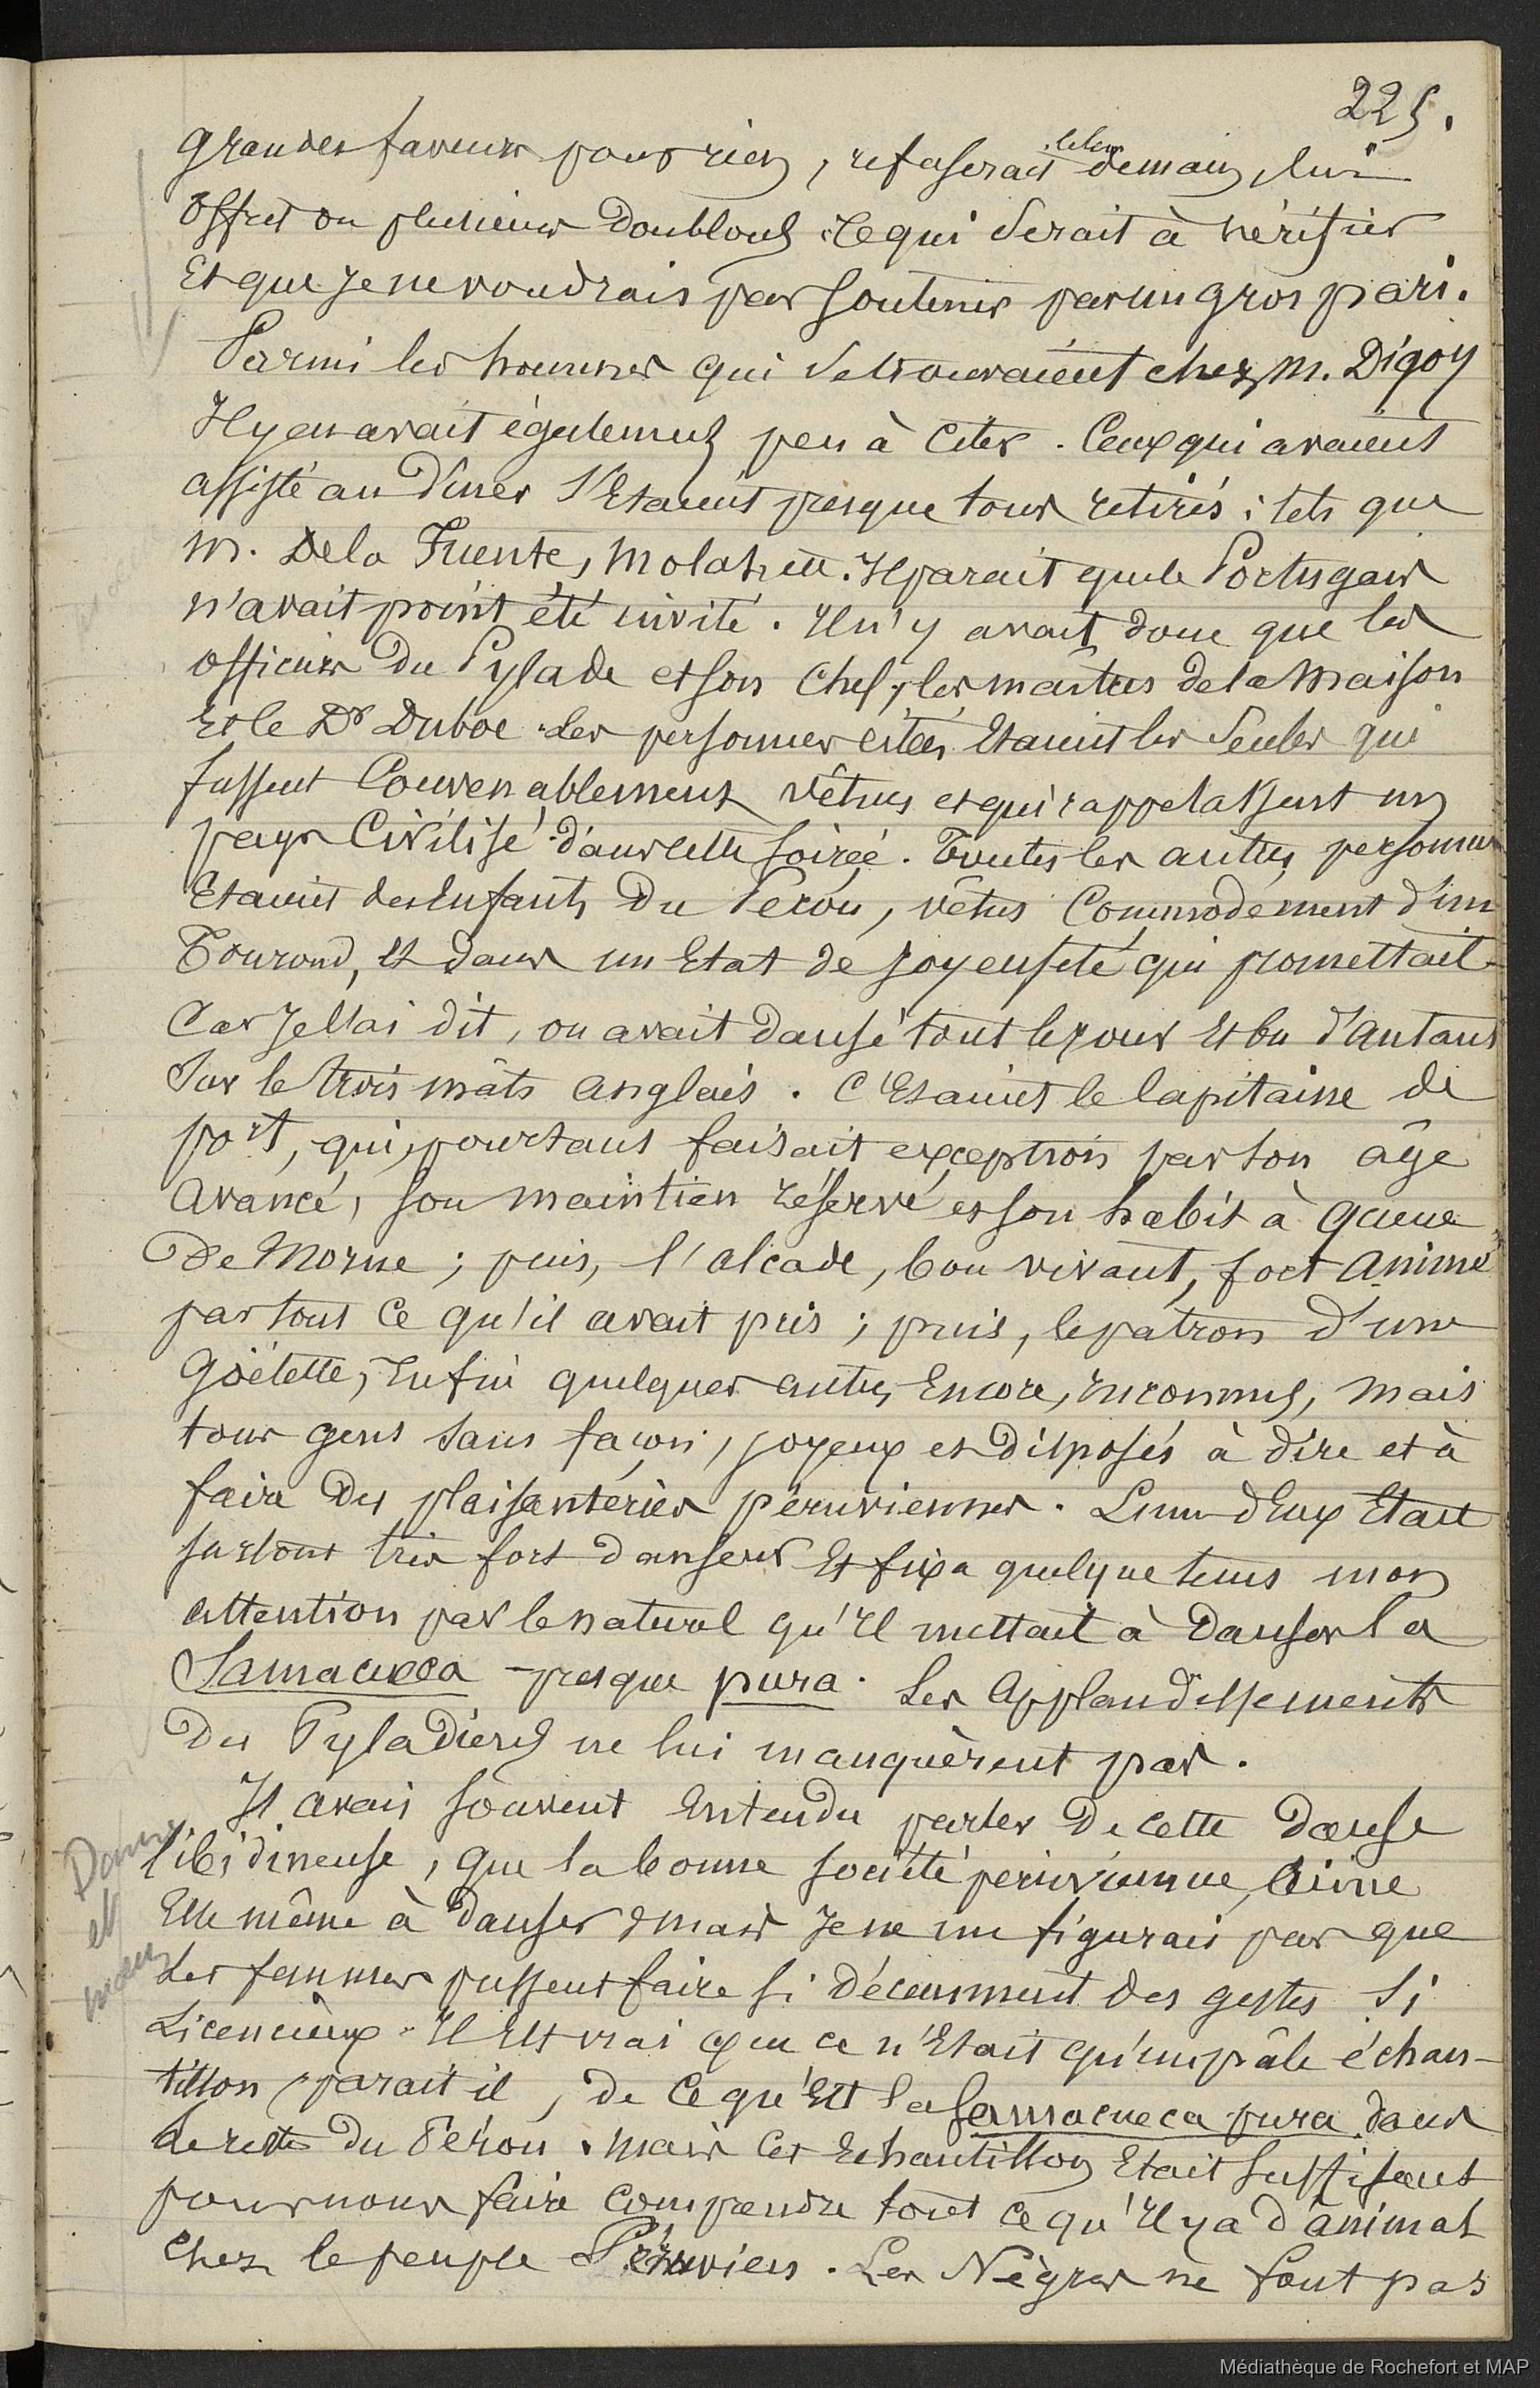 225.
grandes faveurs pour rien, refuserait demain, lui
offrit on plusieurs Doublons. Ce qui Serait à vérifier
Et que Je ne voudrais pas Soutenir par un gros pari.
Parmi les hommes qui Se trouvaient chez M. Digoy
Il y en avait également peu à Citer. Ceux qui avaient
assisté au Dîner S'Etaient presque tous retirés : tels que
M. De la Fuente, Il parait que le Portugais
n'avait point été invité. Il n'y avait donc que les
officiers Du Pylade et Son Chef, les maîtres de la Maison
et le Dr Duboc. Les personnes citées Etaient les Seules qui
fussent Convenablement vêtues et qui rappelassent un
pays Civilisé dans cette Soirée. Toutes les autres personnes
Etaient des Enfants Du Pérou, vêtus Commodément d'un
Bourond, et dans un Etat de Joyeuseté qui promettait
Car Je l'ai dit, on avait dansé tout le jour Et bu d'autant
Sur le trois mâts anglais. C'Etaient le Capitaine de
port, qui, pourtant faisait exception par Son âge
avancé, Son maintien réservé et Son habit à queue
De Morue ; puis, l'alcade, bon vivant, fort animé
par tout Ce qu'il avait pris ; puis, le patron d'une
Goëlette, Enfin quelques autres Encore, Inconnus, mais
tous gens Sans façon, joyeux et disposés à dire et à
faire des plaisanteries péruviennes. L'un d'Eux Etait
Surtout très fort danseur Et fixa quelque tems mon
attention par le naturel qu'Il mettait à Danser la
Samacueca presque pura. Les Applaudissements
Des Pyladiens ne lui manquèrent pas.
J'avais Souvent Entendu parler De cette Danse
libidineuse, que la bonne Société péruvienne, aime
Elle même à Danser mais Je ne me figurais pas que
des femmes pussent faire Si décemment Des gestes Si
Licencieux. Il Est vrai que ce n'Etait qu'un pâle échan-
tillon, parait il, de Ce qu'Est la Samacueca pura dans
le reste Du Pérou. mais Cet Echantillon Etait Suffisant
pour nous faire Comprendre tout Ce qu'Il y a d'animal
Chez le peuple Péruvien. Les Nègres ne font pas
Danse
et
Médiathèque de Rochefort et MAP